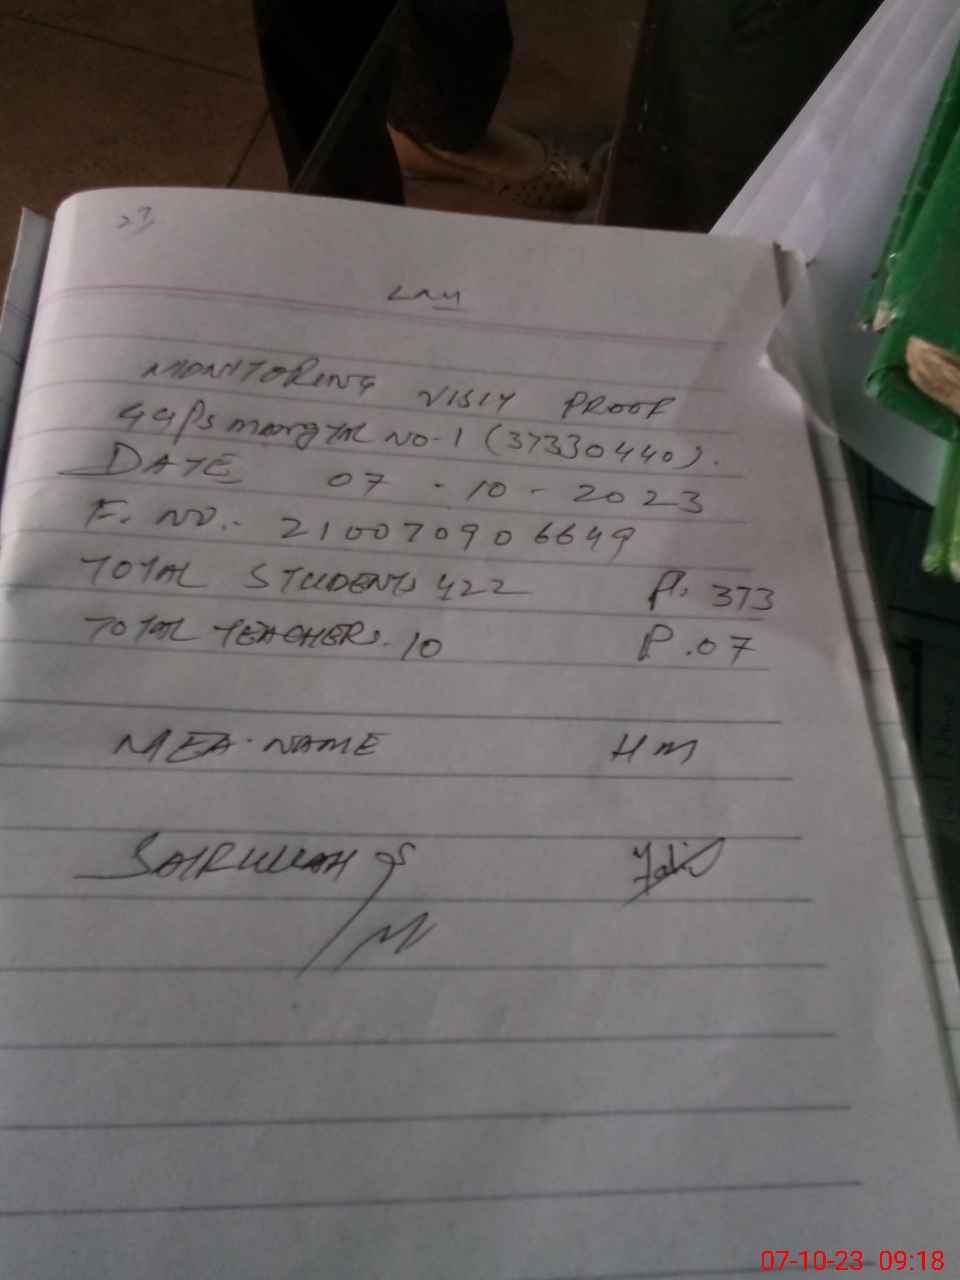 27
MONITORING VISIT PROOF
GGPS No-1 (37330440).
DATE 07-10-2023
F. NO.. 210070906649
TOTAL STUDENTS 422 P. 373
TOTAL TEACHERS. 10 P. 07
MEA. NAME HM
07-10-23 09:18